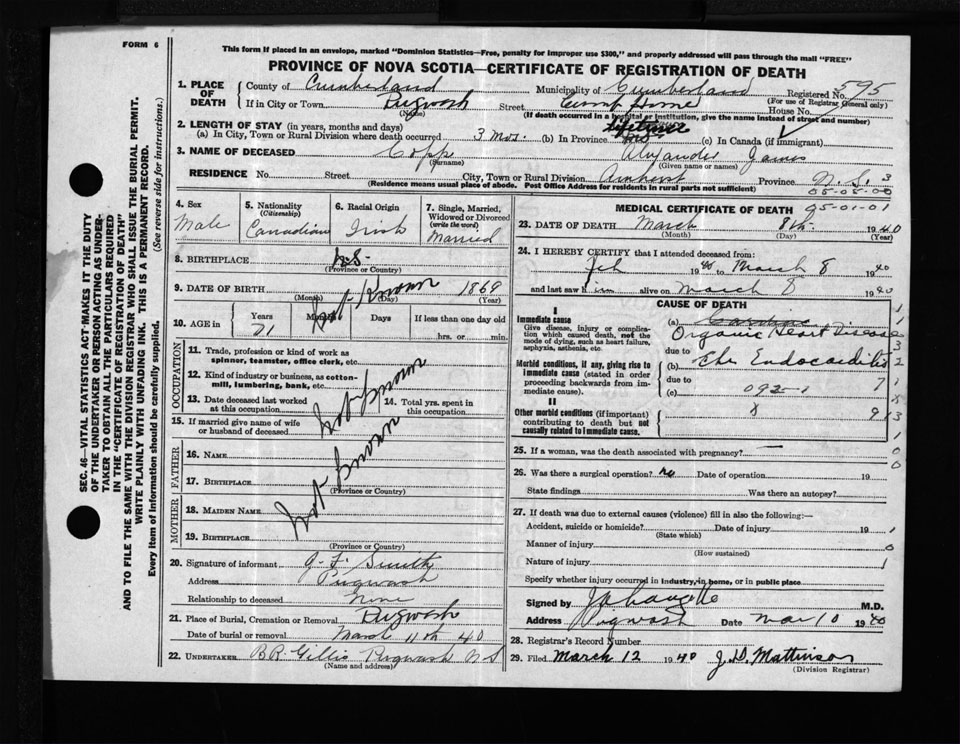 FORM 6
This form if placed in an envelope, marked "Dominion Statistics—Free, penalty for improper use $300," and properly addressed will pass through the mail "FREE"
PROVINCE OF NOVA SCOTIA—CERTIFICATE OF REGISTRATION OF DEATH
1. PLACE OF DEATH
County of Cumberland Municipality of Cumberland Registered No. 595
(For use of Registrar General only)
If in City or Town Pugwash Street House No.
(Name) (If death occurred in a hospital or institution, give the name instead of street and number)
2. LENGTH OF STAY (in years, months and days)
(a) In City, Town or Rural Division where death occurred 3 Mos. (b) In Province lifetime (c) In Canada (if immigrant)
3. NAME OF DECEASED Copp Alexander James
(Surname) (Given name or names)
RESIDENCE No. Street City, Town or Rural Division Amherst Province N.S. 3
(Residence means usual place of abode. Post Office Address for residents in rural parts not sufficient)
05-05-00
4. Sex Male
5. Nationality (Citizenship) Canadian
6. Racial Origin Irish
7. Single, Married, Widowed or Divorced (write the word) Married
8. BIRTHPLACE N.S.
(Province or Country)
9. DATE OF BIRTH Not Known 1869
(Month) (Day) (Year)
10. AGE in Years 71 Months Days If less than one day old
hrs. or min.
OCCUPATION
11. Trade, profession or kind of work as spinner, teamster, office clerk, etc.
12. Kind of industry or business, as cotton-mill, lumbering, bank, etc.
13. Date deceased last worked at this occupation
14. Total yrs. spent in this occupation
Not Known
15. If married give name of wife or husband of deceased
FATHER
16. NAME
17. BIRTHPLACE
(Province or Country)
Not Known
MOTHER
18. MAIDEN NAME
19. BIRTHPLACE
(Province or Country)
20. Signature of informant Smith
Address Pugwash
Relationship to deceased None
21. Place of Burial, Cremation or Removal Pugwash
Date of burial or removal March 11th 40
22. UNDERTAKER B.R. Gillis Pugwash N S
(Name and address)
MEDICAL CERTIFICATE OF DEATH 05-01-01
23. DATE OF DEATH March 8th 1940
(Month) (Day) (Year)
24. I HEREBY CERTIFY that I attended deceased from:
Feb 1940 to March 8 1940
and last saw him alive on March 8 1940
CAUSE OF DEATH
I
Immediate cause
Give disease, injury or complication which caused death, not the mode of dying, such as heart failure, asphyxia, asthenia, etc.
(a) Cardiac
Organic Heart Disease
due to
Morbid conditions, if any, giving rise to immediate cause (stated in order proceeding backwards from immediate cause)
(b) Chr Endocarditis
due to
(c) 092-1 7
II
Other morbid conditions (important) contributing to death but not causally related to immediate cause.
25. If a woman, was the death associated with pregnancy? —
26. Was there a surgical operation? No Date of operation 19
State findings Was there an autopsy?
27. If death was due to external causes (violence) fill in also the following:—
Accident, suicide or homicide? Date of injury 19
(State which)
Manner of injury
(How sustained)
Nature of injury
Specify whether injury occurred in industry, in home, or in public place
Signed by M.D.
Address Pugwash Date Mar 10 1940
28. Registrar's Record Number
29. Filed March 12 1940 J.D. Mattinson
(Division Registrar)
SEC. 46—VITAL STATISTICS ACT—MAKES IT THE DUTY
OF THE UNDERTAKER OR PERSON ACTING AS UNDER-
TAKER TO OBTAIN ALL THE PARTICULARS REQUIRED
IN THE "CERTIFICATE OF REGISTRATION OF DEATH"
AND TO FILE THE SAME WITH THE DIVISION REGISTRAR WHO SHALL ISSUE THE BURIAL PERMIT.
WRITE PLAINLY WITH UNFADING INK. THIS IS A PERMANENT RECORD.
Every item of information should be carefully supplied. (See reverse side for instructions.)